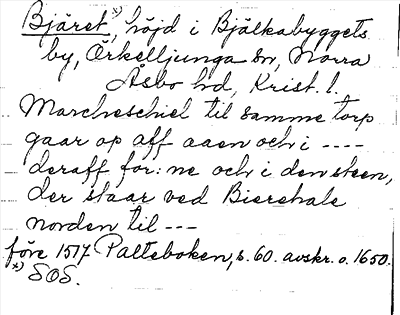 Bjäret *), höjd i Bjälkabyggets
by, Örkelljunga sn, Norra
Åsbo hd, Krist. l.
Marcheschiel til samme torp
gaar op aff aaen och i ----
deraff for: ne och i den steen,
der staar ved Bierehale
norden til ---
före 1517 Palteboken, s. 60. avskr. o. 1650.
*) SOS.